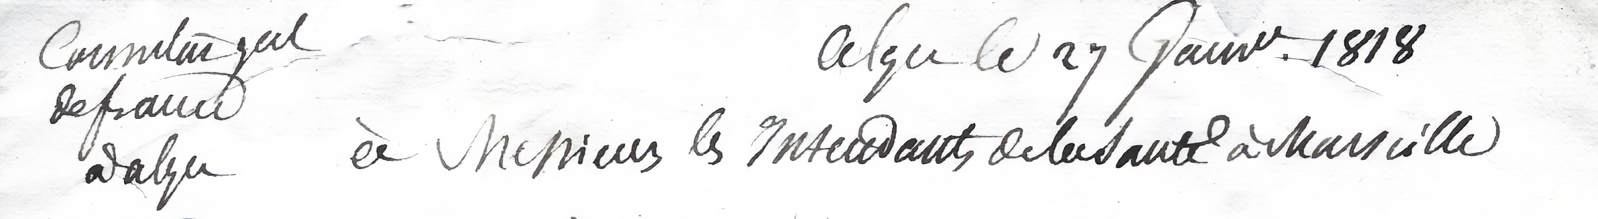 Consulat géral
de france
à alger
alger le 27 Janver. 1818
à Messieurs les Intendants de la Santé à Marseille